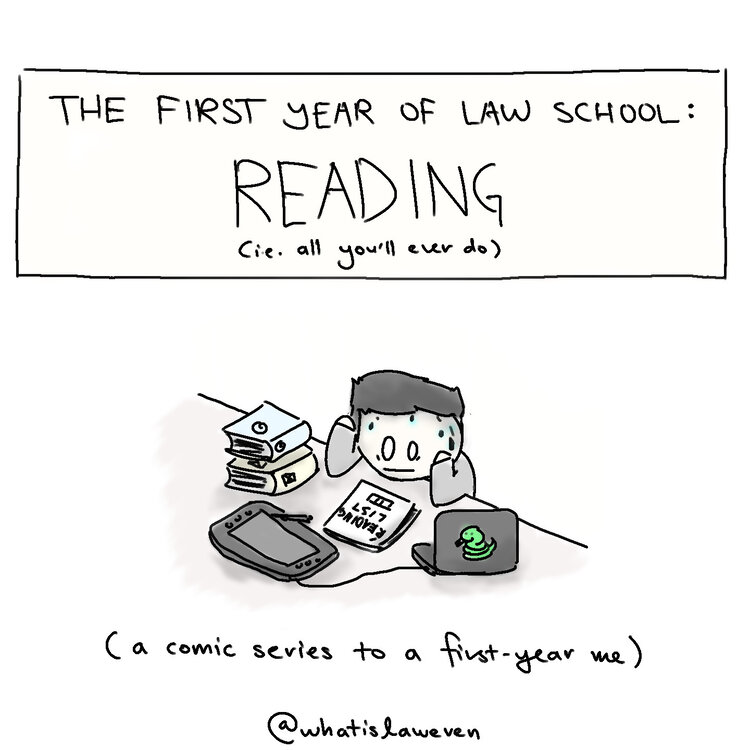 THE FIRST YEAR OF LAW SCHOOL:
READING
(i.e. all you'll ever do)
READING
LIST
(a comic series to a first-year me)
@whatislaweven